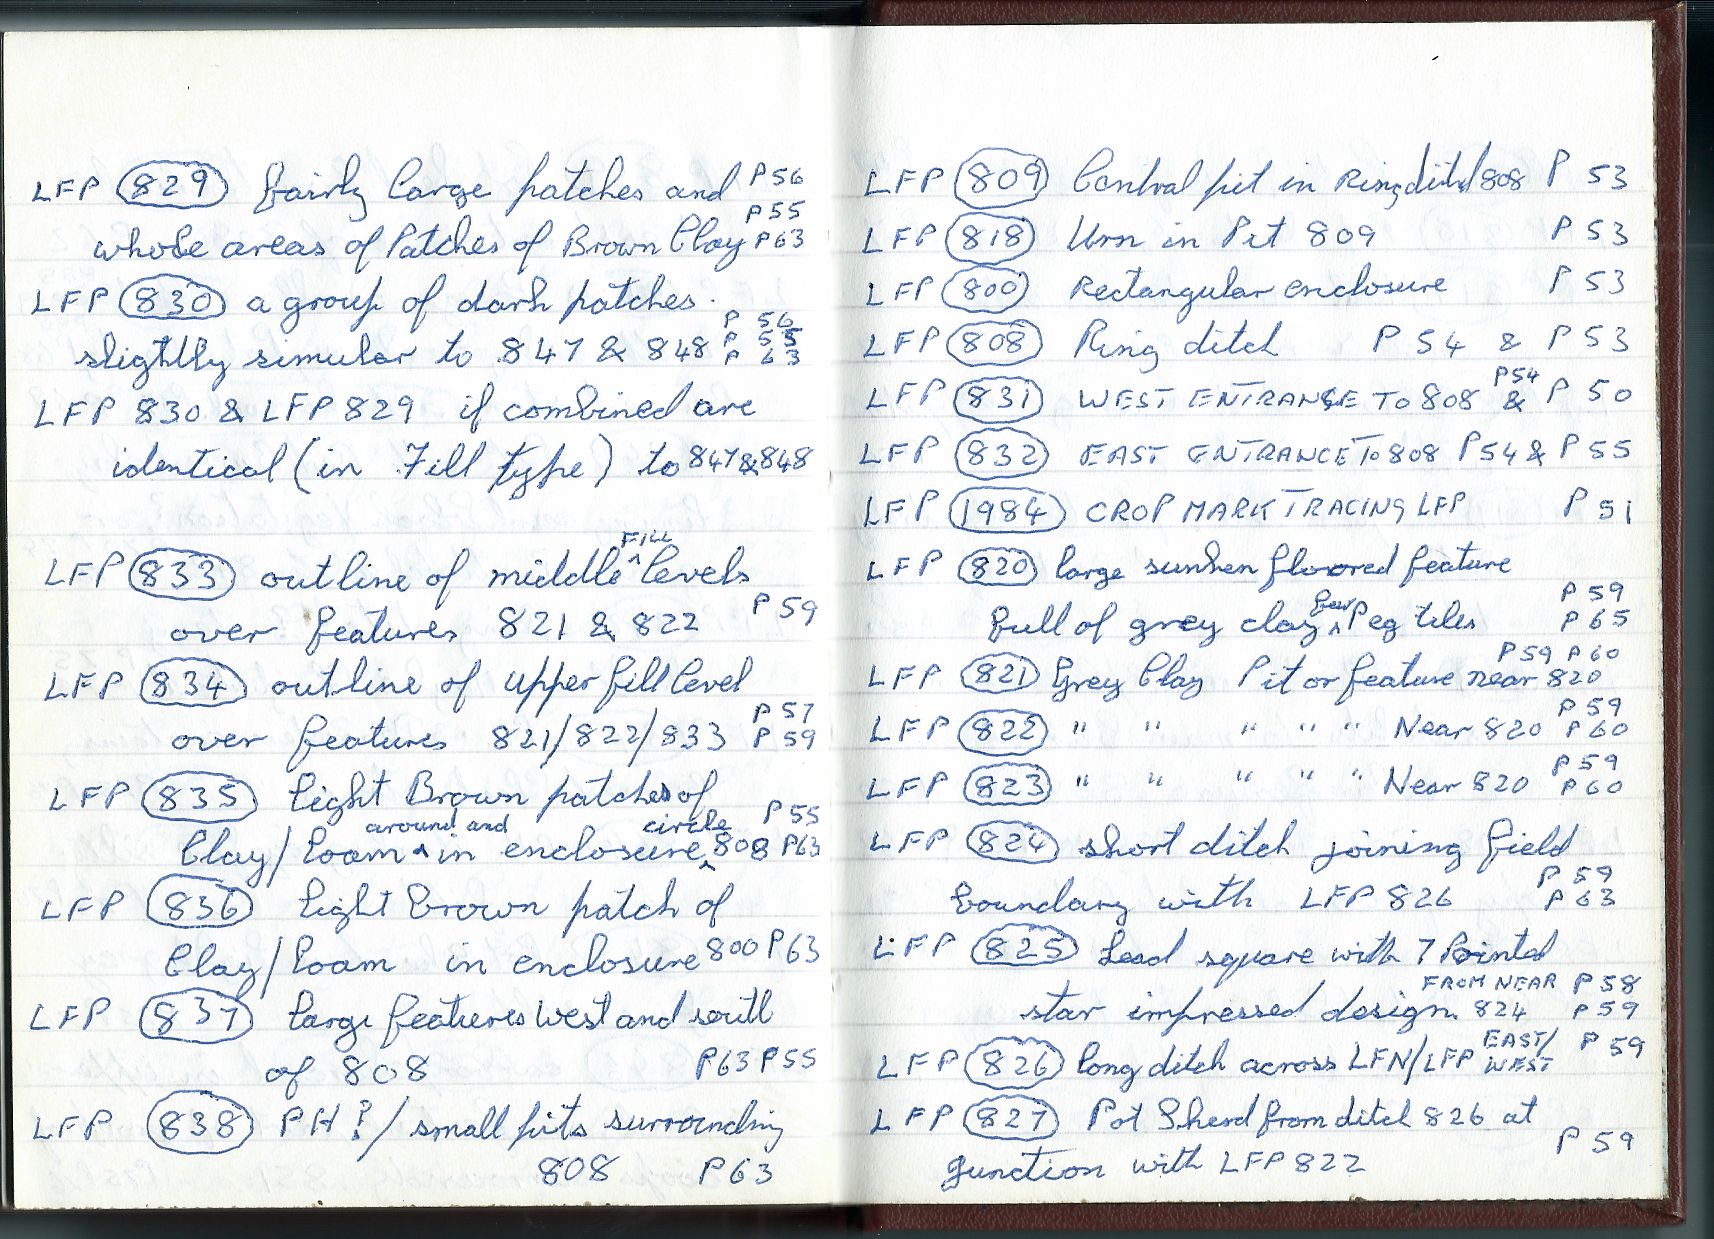 LFP 829 fairly large patches and P56
P55
whole areas of Patches of Brown Clay P63
LFP 830 a group of dark patches.
P 56
slightly simular to 847 & 848 P 55
P 63
LFP 830 & LFP 829 if combined are
identical (in Fill type) to 847 & 848
FILL
LFP 833 outline of middle ^ levels
P 59
over features 821 & 822
LFP 834 outline of upper fill level
P 57
over features 821/822/833 P 59
LFP 835 light Brown patches of
around and circle P55
Clay/loam ^ in enclosure ^ 808 P63
LFP 836 light brown patch of
Clay/loam in enclosure 800 P63
LFP 837 large features West and south
of 808 P63 P55
LFP 838 PH?/small pits surrounding
808 P63
LFP 809 Central pit in Ring ditch 808 P 53
LFP 818 Urn in Pit 809 P 53
LFP 800 Rectangular enclosure P 53
LFP 808 Ring ditch P 54 & P 53
P54
LFP 831 WEST ENTRANCE TO 808 & P 50
LFP 832 EAST ENTRANCE TO 808 P54 & P 55
LFP 1984 CROP MARK TRACING LFP P 51
LFP 820 large sunken floored feature
few P 59
full of grey clay ^ Peg tiles P 65
P59 P60
LFP 821 Grey Clay Pit or feature near 820
P 59
LFP 822 " " " " " Near 820 P60
P 59
LFP 823 " " " " " Near 820 P60
LFP 824 short ditch joining field
P 59
boundary with LFP 826 P 63
LFP 825 Lead square with 7 Pointed
FROM NEAR P 58
star impressed design. 824 P 59
EAST/
LFP 826 long ditch across LFN/LFP WEST P 59
LFP 827 Pot Sherd from ditch 826 at
P 59
junction with LFP 822